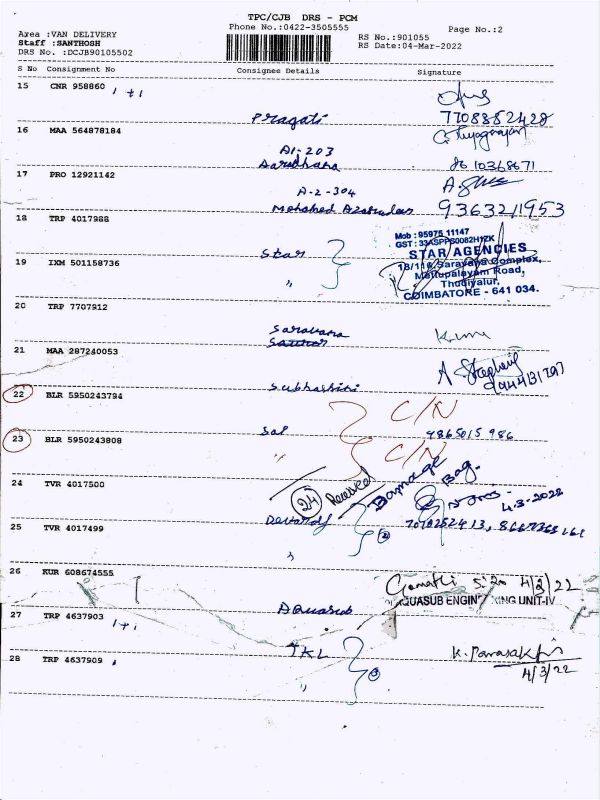 TPC/CJB DRS - PCM
Phone No.:0422-3505555
Page No.:2
Area :VAN DELIVERY
RS No.:901055
Staff :SANTHOSH
RS Date:04-Mar-2022
DRS No. :DCJB90105502
S No Consignment No Consignee Details Signature
15 CNR 958860 1+1
Pragati 7708882428
16 MAA 564878184 C. Thyagarajan
A1-203
Aaradhana 8610368671
17 PRO 12921142
A-2-304
Mohahed 9363211953
18 TRP 4017988
Star
Mob : 95975 11147
GST : 33ASPPS0082H1ZK
STAR AGENCIES
18/116, Saravana Complex,
Mettupalayam Road,
Thudiyalur,
COIMBATORE - 641 034.
19 IXM 501158736 "
20 TRP 7707912
Saravana
21 MAA 287240053
Subhashini
A Stephen
22 BLR 5950243794 C/N
Sal 9865015986
23 BLR 5950243808 " C/N
24 TVR 4017500
24 Received
Damage Bag.
4-3-2022
Devaraj
25 TVR 4017499 2
"
26 KUR 608674555
Gomathi 5:20 4/3/22
AQUASUB ENGINEERING UNIT-IV
Aquasub
27 TRP 4637903 1+1
TKL
28 TRP 4637909 "
4/3/22